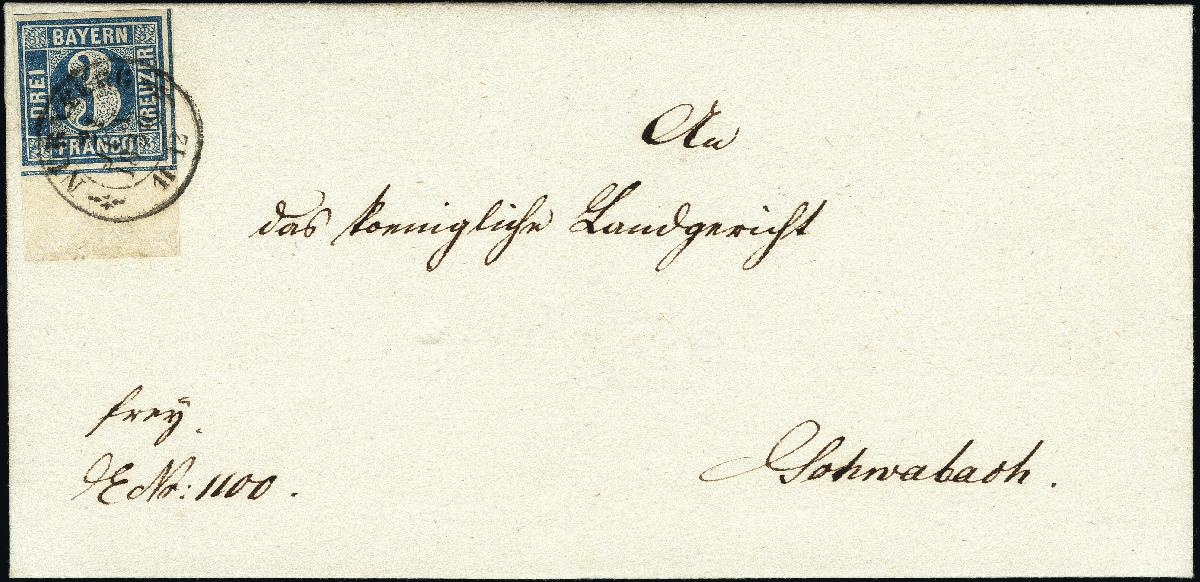 BAYERN
DREI
3
KREUZER
FRANCO
11 12
An
das koenigliche Landgericht
frey.
E No: 1100.
Schwabach.